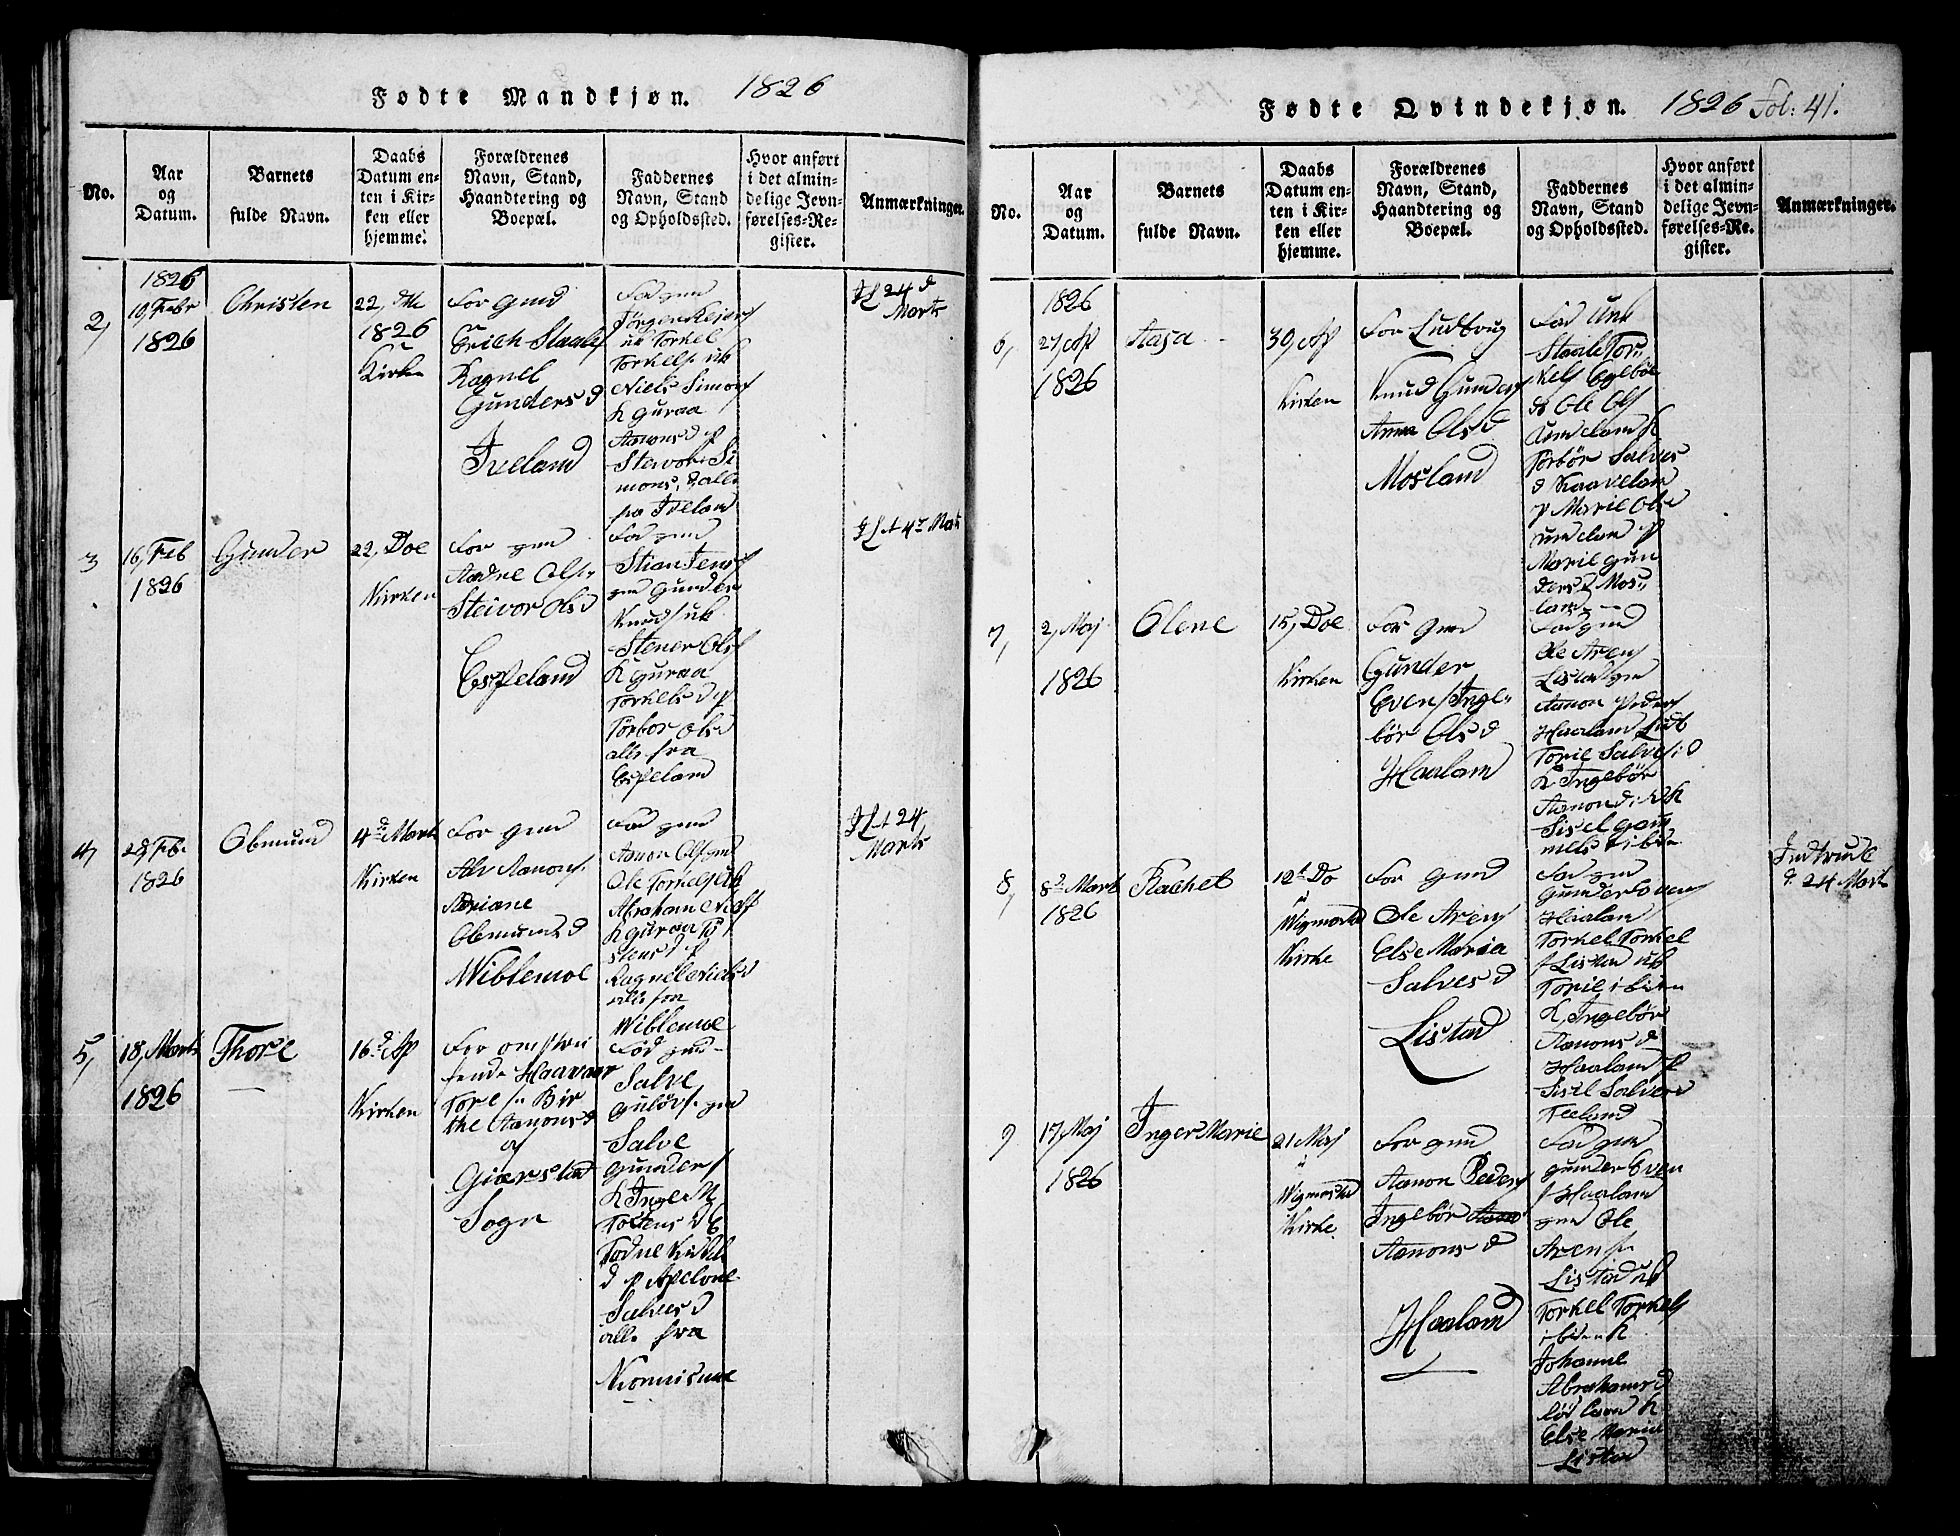 Fødte Mandkjøn. 1826
No.
Aar
og
Datum.
Barnets
fulde Navn.
Daabs
Datum en-
ten i Kir-
ken eller
hjemme.
Forældrenes
Navn, Stand,
Haandtering og
Boepæl.
Faddernes
Navn, Stand
og Opholdssted.
Hvor anført
i det almin-
delige Jevn-
førelses-Re-
gister.
Anmærkninger.
2,
1826
19, Febr
1826
Christen
22, dMe
1826
Kirken
For gmd
Erich Staalef
Ragnel
Gundersd
Iveland
Fad gm
Jørgen
uk Torkel
Torkels uk
Niels Simons
K Guraa
Aanonsd P
Steivor Si
mons, d alle
fra Iveland
24 d
Marts
3
16, Feb
1826
Gunder
22, Doe
Kirken
For gm
Aadne Ols.
Steivor Olsd
Espeland
Fad gm
Stian Jens
gm Gunder
Knuds uk
Stener Ols
K Guraa
Torkelsd P
Torbor Olsd
alle fra
Espeland
4 Marts
4,
28, Feb.
1826
Obmund
4d Marts
Kirken
For gmd
Alv Aanons.
Adriane
Obmunds d
Wiblemoe
Fad gmd
Aanon Ols gm
Ole Torkels uk
Abraham Niels
K Guraa To
stens d P
Ragnel Nielsd
alle fra
Wiblemoe
24
Marts
5,
18, Marts
1826
Thore
16d Ap
Kirken
For omstrei
fende Haavaar
Tore s Bir
the Aanonsd
af
Gierstad
Sogn
Fad gm
Salve
Guldvs. gm
Salve
Gunders
K Inge M
Tostens d E
Todne
d P Apelone
Salves d
alle fra
Fødte Qvindekjøn. 1826 Fol: 41.
No.
Aar
og
Datum.
Barnets
fulde Navn.
Daabs
Datum en-
ten i Kir-
ken eller
hjemme.
Forældrenes
Navn, Stand,
Haandtering og
Boepæl.
Faddernes
Navn, Stand
og Opholdssted.
Hvor anført
i det almin-
delige Jevn-
førelses-Re-
gister.
Anmærkninger.
6,
1826
27, Ap
1826
Aasa
30, Ap
Kirken
For Ludbrug
Knud Gunders
Anna Olsd
Mosland
Fad Unk
Staale Tor-
kels Egebøe
Ole Ols
K
Torbør Salves
d Kaaveland
P Marie Olsd
P
Marie Gun
dersd Mos-
land
7,
2, Maj
1826
Olene
15, Doe
Kirken
For gmd
Gunder
Evens Inge-
bør Olsd
Haaland
Fad gmd
Ole Arens
Listad gm
Aanon Peders
Haaland
Torie Salves d
K Ingebør
Aanonsd ibd K
Sisel Gam
mels d ibidn
8,
8d Marts
1826
Rachel
12t Do
Wigmostad
Kirke
For gmd
Ole Arens
Else Maria
Salves d
Listad
Fad gm
Gunder Evens
Haaland
Torkel Torkel
s Listad uk
Torie ibiden
K, Ingebør
Aanons d
Haaland P
Sisel Salvesd
Indtrude
d. 24 Marts
9
17, Maj
1826
Inger Marie
21 Maj
Wigmostad
Kirke
For gmd
Aanon Peders
Ingebør
Aanons d
Haaland
Fad gm
Gunder Even
s Haaland
gm Ole
Arens.
Listad uk
Torkel Torkels
ibiden K
Johanne
Abrahams d
K
Else Maria
Listad